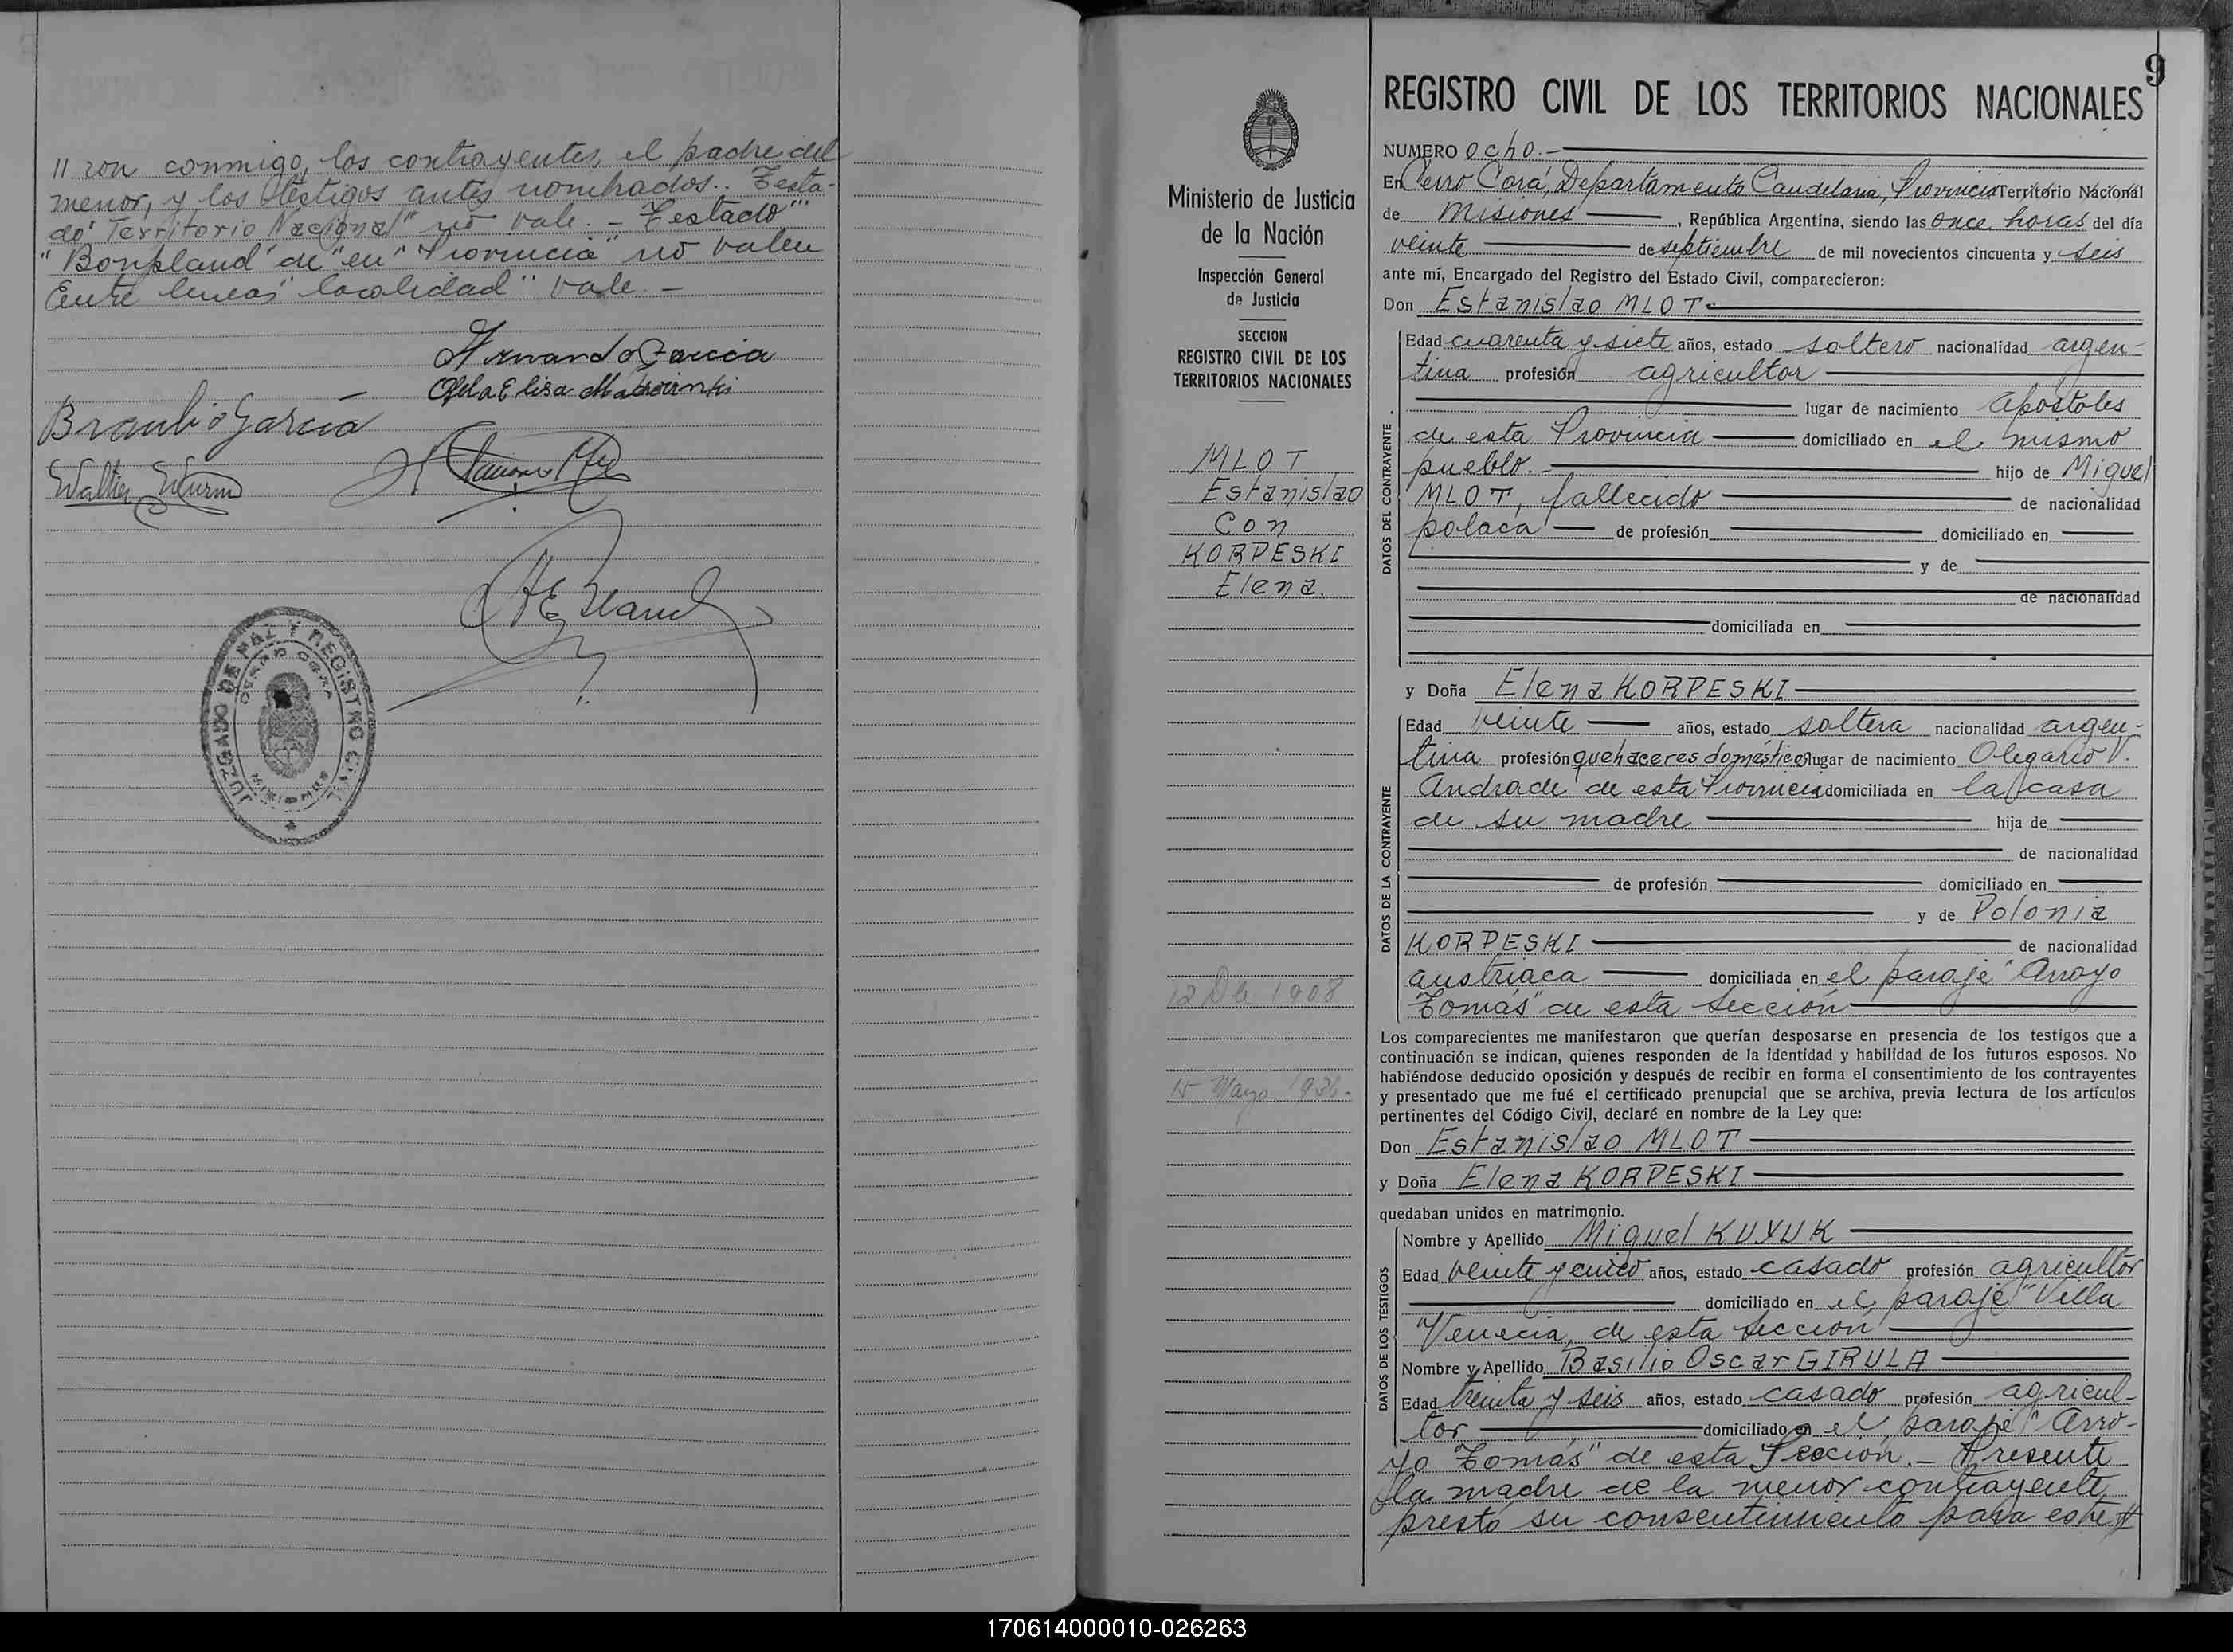 // ron conmigo, los contrayentes, el padre del
menor, y los testigos antes nombrados.. Testa-
do "Territorio Nacional" no vale. - Testado "
"Bonpland" de "en" Provincia" no valen
Entre lineas "localidad" vale. -
Hernando Garcia
Ofelia Elisa
Braulio García
Walter
JUZGADO DE PAZ Y REGISTRO CIVIL
CERRO CORA
MISIONES
9
Ministerio de Justicia
de la Nación
Inspección General
de Justicia
SECCION
REGISTRO CIVIL DE LOS
TERRITORIOS NACIONALES
MLOT
Estanislao
Con
KORPESKI
Elena.
12 Db 1908
15 Mayo 1936.
REGISTRO CIVIL DE LOS TERRITORIOS NACIONALES
NUMERO ocho.-
En Cerro Corá, Departamento Candelaria, Provincia Territorio Nacional
de Misiones, República Argentina, siendo las once horas del día
veinte de septiembre de mil novecientos cincuenta y seis
ante mí, Encargado del Registro del Estado Civil, comparecieron:
Don Estanislao MLOT.
DATOS DEL CONTRAYENTE
Edad cuarenta y siete años, estado soltero nacionalidad argen-
tina profesión agricultor
lugar de nacimiento Apostoles
de esta Provincia domiciliado en el mismo
pueblo. hijo de Miguel
MLOT, fallecido de nacionalidad
polaca de profesión domiciliado en
y de
de nacionalidad
domiciliada en
y Doña Elena KORPESKI
DATOS DE LA CONTRAYENTE
Edad veinte años, estado soltera nacionalidad argen-
tina profesión quehaceres domésticos lugar de nacimiento Olegario V.
Andrade de esta Provincia domiciliada en la casa
de su madre hija de
de nacionalidad
de profesión domiciliado en
y de Polonia
KORPESKI de nacionalidad
austriaca domiciliada en el paraje "Arroyo
Tomás" de esta sección
Los comparecientes me manifestaron que querían desposarse en presencia de los testigos que a
continuación se indican, quienes responden de la identidad y habilidad de los futuros esposos. No
habiéndose deducido oposición y después de recibir en forma el consentimiento de los contrayentes
y presentado que me fué el certificado prenupcial que se archiva, previa lectura de los artículos
pertinentes del Código Civil, declaré en nombre de la Ley que:
Don Estanislao MLOT
y Doña Elena KORPESKI
quedaban unidos en matrimonio.
DATOS DE LOS TESTIGOS
Nombre y Apellido Miguel KUYUK
Edad veinte y cinco años, estado casado profesión agricultor
domiciliado en el paraje "Villa
Venecia, de esta sección
Nombre y Apellido Basilio Oscar GIRULA
Edad treinta y seis años, estado casado profesión agricul-
tor domiciliado en el paraje "Arro-
yo Tomás" de esta Sección.- Presente
la madre de la menor contrayente,
prestó su consentimiento para este //
170614000010-026263